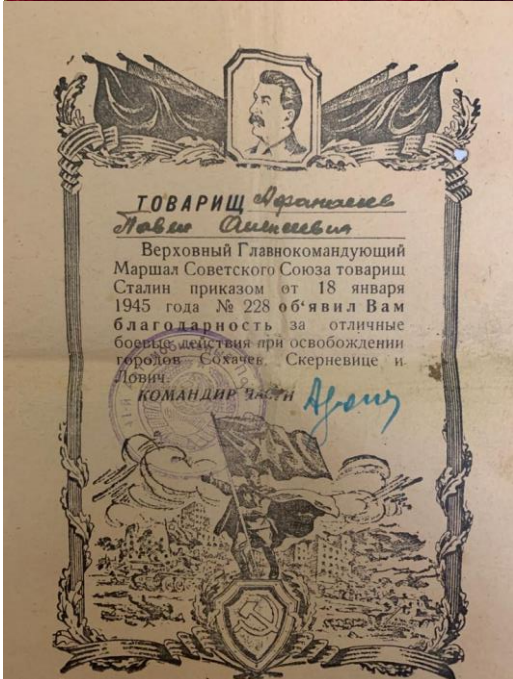 ТОВАРИЩ Афанасьев
Павел Алексеевич
Верховный Главнокомандующий
Маршал Советского Союза товарищ
Сталин приказом от 18 января
1945 года № 228 об‘явил Вам
благодарность за отличные
боевые действия при освобождении
городов Сохачев, Скерневице и
Лович.
КОМАНДИР ЧАСТИ